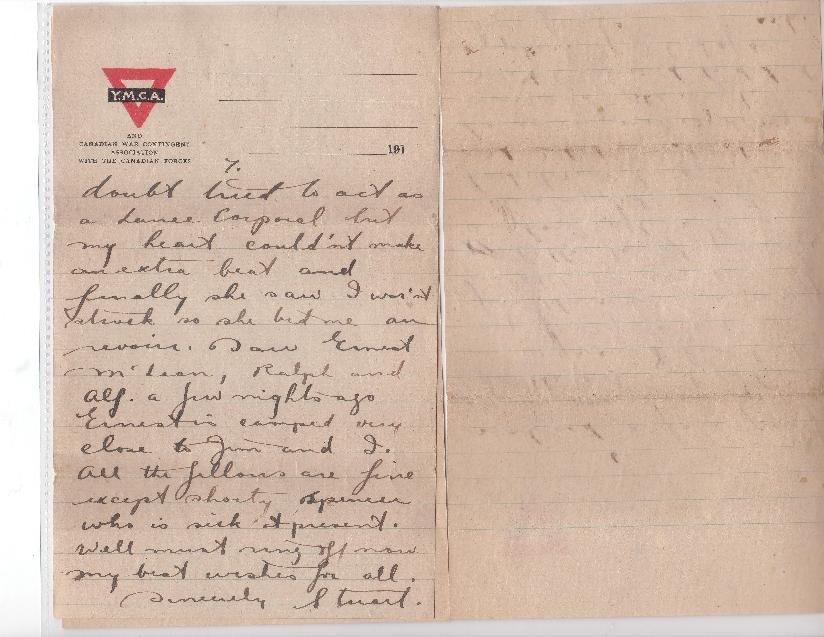 Y.M.C.A.
AND
CANADIAN WAR CONTINGENT
ASSOCIATION
WITH THE CANADIAN FORCES
191
7.
doubt tried to act as
a Lance Corporal but
my heart could'nt make
an extra beat and
finally she saw I was'nt
struck so she bid me au
revoir. Saw Ernest
McLean, Ralph and
Alf. a few nights ago
Ernest is camped very
close to Jim and I.
All the fellows are fine
except shorty Spencer
who is sick at present.
Well must ring off now
my best wishes for all.
Sincerely Stuart.